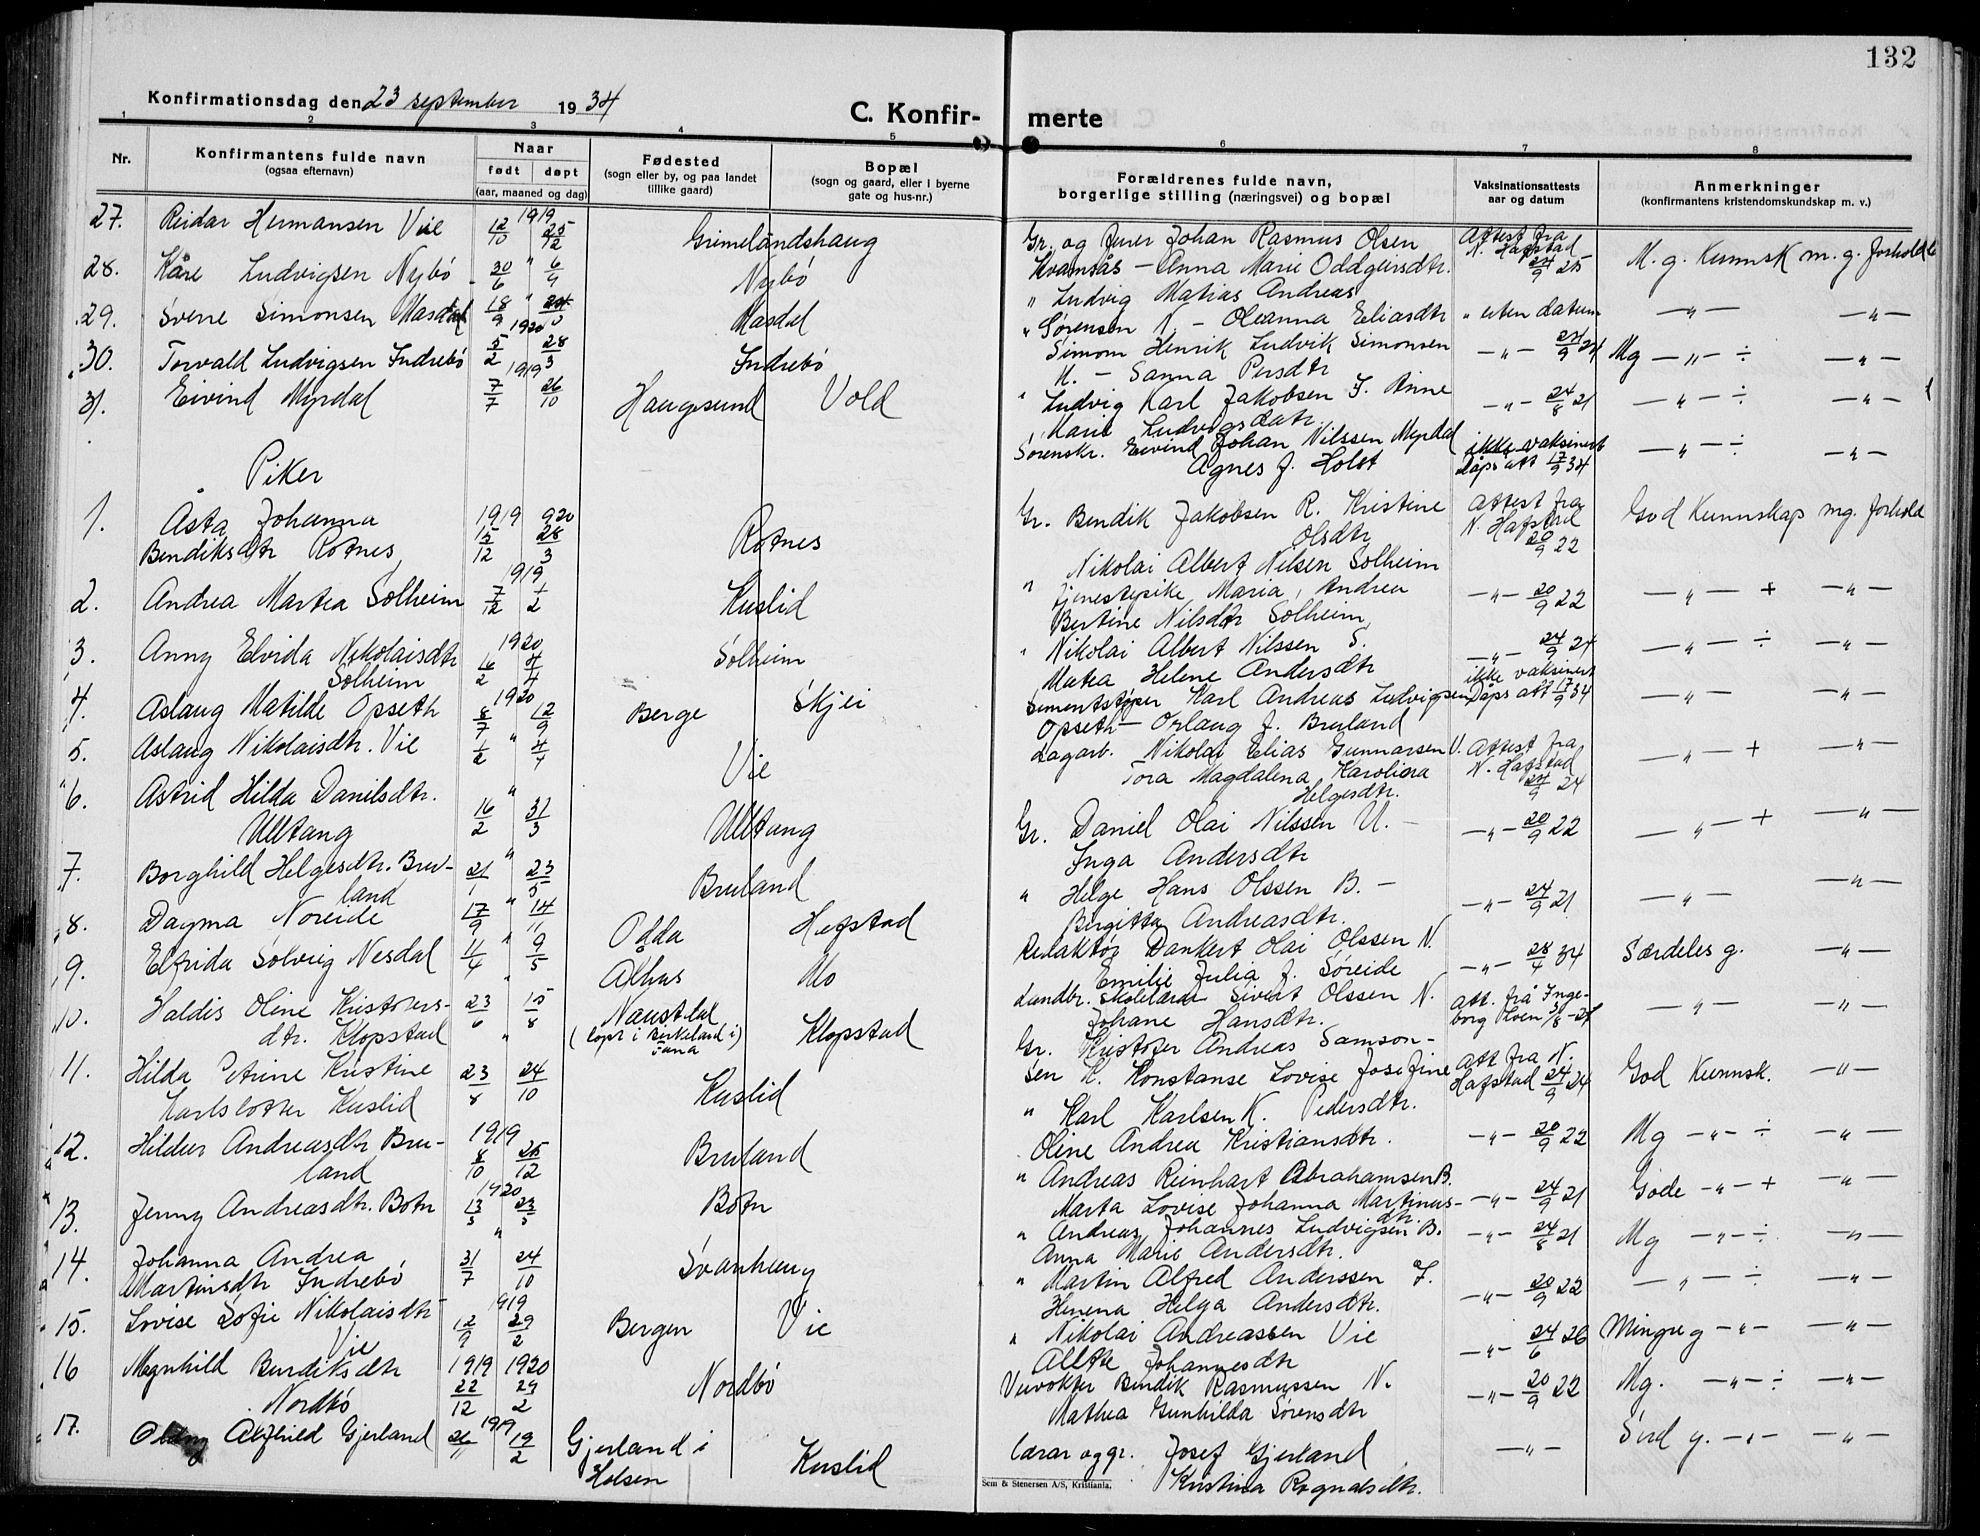 132
Konfirmationsdag den 23 september 1934
C. Konfirmerte
1 2 3 4 5 6 7 8
Nr.
Konfirmantens fulde navn
(ogsaa efternavn)
Naar
født døpt
(aar, maaned og dag)
Fødested
(sogn eller by, og paa landet
tillike gaard)
Bopæl
(sogn og gaard, eller i byerne
gate og hus-nr.)
Forældrenes fulde navn,
borgerlige stilling (næringsvei) og bopæl
Vaksinationsattests
aar og datum
Anmerkninger
(konfirmantens kristendomskundskap m. v.)
27. Reidar Hermansen Vie 1919 12/10 25/12 Grimelandshaug
Gr. og Johan Rasmus Olsen
Kvamsås - Anna Marie Oddgeirsdtr.
Attest fra N. Hafstad 24/9 25 M. g. Kunnsk m. g. forhold
28. Kåre Ludvigsen Nybø 30/6 " 6/9 Nybø
" Ludvig Matias Andreas
Sørensen N. - Oleanna Eliasdtr " uten datum — " — — " —
29. Sverre Simonsen Masdal 18/9 " Masdal
" Simon Henrik Ludvik Simonsen
M. - Sanna Persdtr — " — 24/9 24 Mg — " — ÷ — " —
30. Torvald Ludvigsen Indrebø 1920 5/2 28/3 Indrebø
" Ludvig Karl Jakobsen I. Anne
Marie Ludvigsdatr — " — 24/8 21 — " — ÷ — " —
31. Eivind Myrdal 1919 7/7 26/10 Haugesund Vold
Sørenskr. Eivind Johan Nilssen Myrdal
Agnes f. Holst ikke vaksinert Dåps att 17/9 34 — " — ÷ — " —
Piker
1. Åsta Johanna
Bendiksdtr Rotnes 1919 15/12 920 28/3 Rotnes
Gr. Bendik Jakobsen R. Kristine
Olsdtr Attest fra N. Hafstad 20/9 22 God Kunnskap mg. forhold
2. Andrea Martea Solheim 1919 7/12 1/2 Kuslid
" Nikolai Albert Nilsen Solheim
Tjenestepike Maria, Andrea
Bertine Nilsdtr Solheim — " — 20/9 22 — " — + — " —
3. Anny Elvida Nikolaisdtr
Solheim 1920 16/2 4/4 Solheim
" Nikolai Albert Nilssen S.
Matea Helene Andersdtr — " — 24/9 24 — " — ÷ — " —
4. Aslaug Matilde Opseth 1920 8/7 12/9 Berge Skjei
Sementstøper Karl Andreas Ludvigsen
Opseth - Orlaug f. Bruland ikke vaksinert Dåps att 17/9 34 — " — — " —
5. Aslaug Nikolaisdtr. Vie 1/2 " 4/4 Vie
Dagarb. Nikolai Elias Gunnarsen V.
Tora Magdalena Karolina
Helgesdtr. Attest fra N. Hafstad 24/9 24 — " — + — " —
6. Astrid Hilda Danilsdtr.
Ulltang 16/2 " 31/3 Ulltang
Gr. Daniel Olai Nilssen U. -
Inga Andersdtr — " — 20/9 22 — " — + — " —
7. Borghild Helgesdtr. Bruland
21/1 " 23/5 Bruland
" Helge Hans Olssen B. -
Bergitta Andreasdtr. — " — 24/9 21 — " — — " —
8. Dagma Noreide 17/9 " 14/11 Odda Hafstad
Redaktør Dankert Olai Olssen N.
Emilie Julia f. Søreide — " — 28/4 34 Særdeles g. — " —
9. Elfrida Solveig Nesdal 11/4 " 9/5 Alhus Mo
Landbr. skolelærer Sivert Olssen N.
Johane Hansdtr. att. frå Ingeborg Loen 3/8 - 24 — " — — " —
10. Haldis Oline Kristofersdtr.
Klopstad 23/6 " 15/8 Naustdal
(døpt i Birkeland i) Klopstad
Gr. Kristofer Andreas Samsonsen
K. Konstanse Lovise Josefine
Pedersdtr. Att fra N. Hafstad 24/9 24 God Kunnsk. — " —
11. Hilda Petrine Kristine
Karlsdotter Kuslid 23/8 " 24/10 Kuslid
" Karl Karlsen K.
Oline Andrea Kristiansdtr. — " — 20/9 22 Mg — " — ÷ — " —
12. Hildur Andreasdtr Bruland
1919 8/10 25/12 Bruland
" Andreas Reinhart Abrahamsen B.
Marta Lovise Johanna Martinusdtr.
— " — 24/9 21 Gode — " — + — " —
13. Jenny Andreasdtr. Botn 1920 13/3 23/5 Botn
" Andreas Johannes Ludvigsen B.
Anna Marie Andersdtr. — " — 24/8 21 Mg — " — ÷ — " —
14. Johanna Andrea
Martinsdtr Indrebø 31/7 " 24/10 Svanhaug
" Martin Alfred Anderssen I.
Helga Andersdtr. — " — 20/9 22 — " — ÷ — " —
15. Lovise Sofie Nikolaisdtr
Vie 1919 12/9 29/2 Bergen Vie
" Nikolai Andreassen Vie
Johannesdtr — " — 24/6 26 Mingre g — " — — " —
16 Magnhild Bendiksdtr
Nordbø 1919 1920 22/12 29/2 Nordbø
Veivokter Bendik Rasmussen N.
Mathea Gunhilda Sørensdtr — " — 20/9 22 Mg. — " — ÷ — " —
17. Alfhild Gjerland 1919 26/11 19/2 Gjerland i
Holsen Kuslid
lærar og gr. Josef Gjerland
Kristina Rognaldsdtr. — " — Særd g. — " — — " —
Sem & Stenersen A/S, Kristiania.